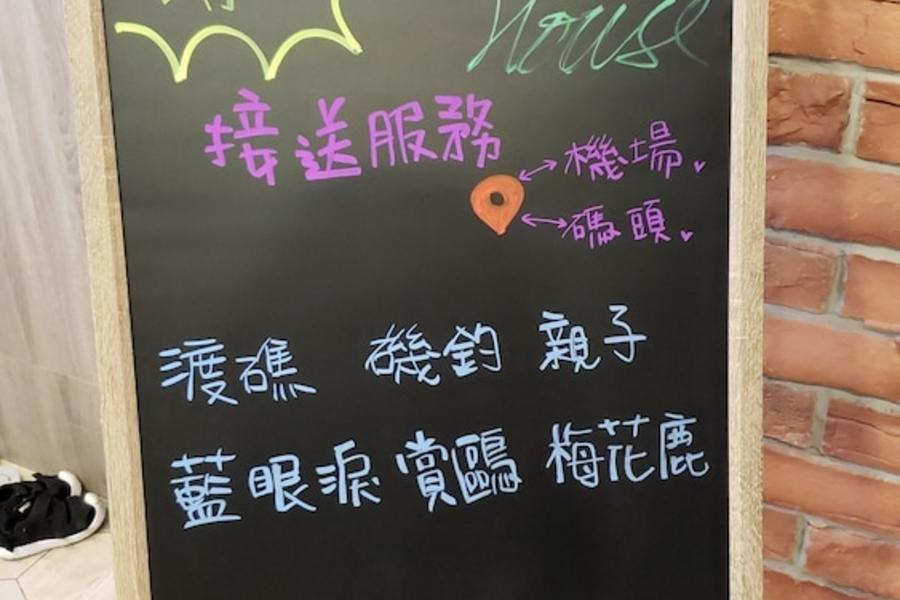 House
接送服務
機場
碼頭
渡礁 磯釣 親子
藍眼淚 賞鷗 梅花鹿